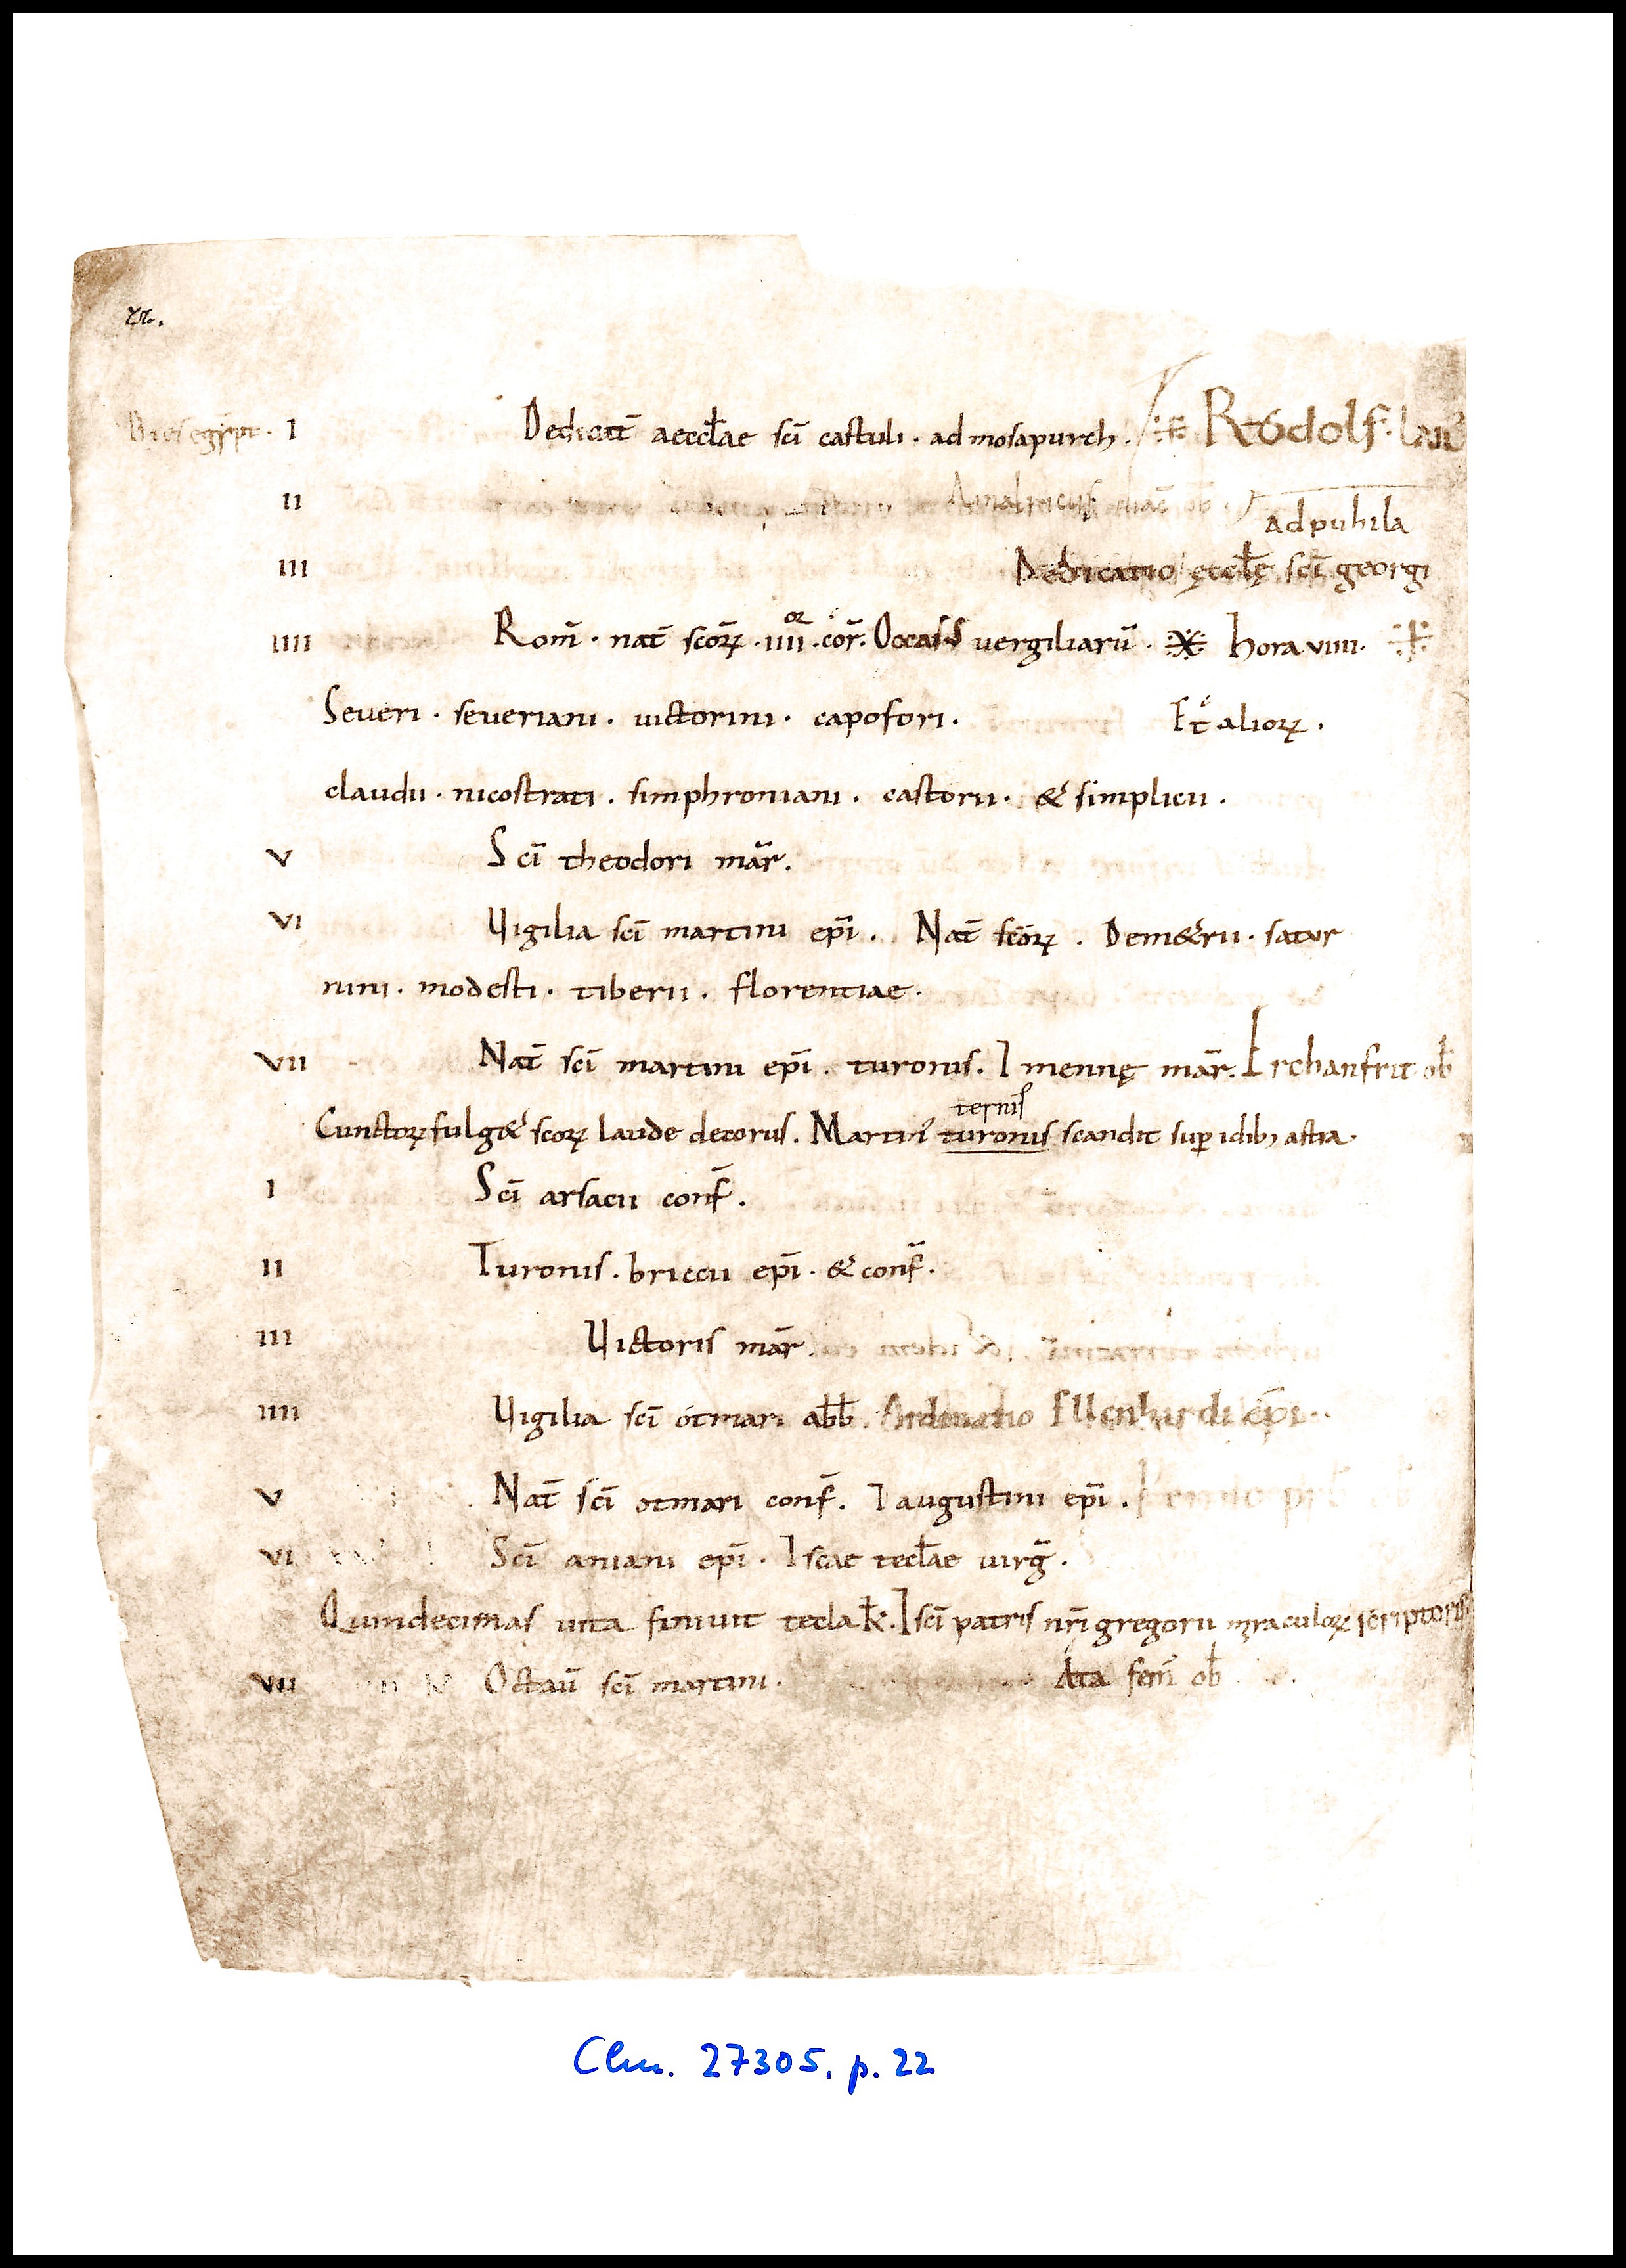 Dies egypt. I Dedicat̄ aeccƚae sc̄i castuli · ad mosapurch · ※ Rodolf · laic̄
II Amalricus diac̄ ob̄ ·
ad puhila
III Dedicatio ęccƚę sc̄i georgi
IIII Rom̄ · nat̄ scōrꝝ · IIII^or · cor̄. Occasꝰ vergiliarū · ※ hora VIIII · ※
Severi · severiani · uictorini · capofori · Et aliorꝝ ·
claudii · nicostrati · simphroniani · castorii · & simplicii ·
V Sc̄i theodori mar̄.
VI Uigilia sc̄i martini ep̄i · Nat̄ scōrꝝ · Dem&rii · satur
nini · modesti · tiberii · florentiae ·
VII Nat̄ sc̄i martini ep̄i · turonis. ⁊ mennę mar̄. Erchanfrit ob̄
ternis
Cunctorꝝ fulg& scōrꝝ laude decorus. Martinꝰ turonis scandit suꝑ idibꝫ astra ·
I Sc̄i arsacii conf̄.
II Turonis · briccii ep̄i · & conf̄ ·
III Uictoris mar̄ ·
IIII Uigilia sc̄i ótmari abb̄ · Ordinatio Ellenhardi ep̄i ·
V Nat̄ sc̄i otmari conf̄. ⁊ augustini ep̄i ·
VI Sc̄i aniani ep̄i · ⁊ scae tecƚae uirḡ ·
Quindecimas uita finiuit tecla k̄. ⁊ sc̄i patris nr̄i gregorii miraculorꝝ scriptoris
VII Octaū sc̄i martini · Ata fem̄ ob̄
Clm. 27305, p. 22